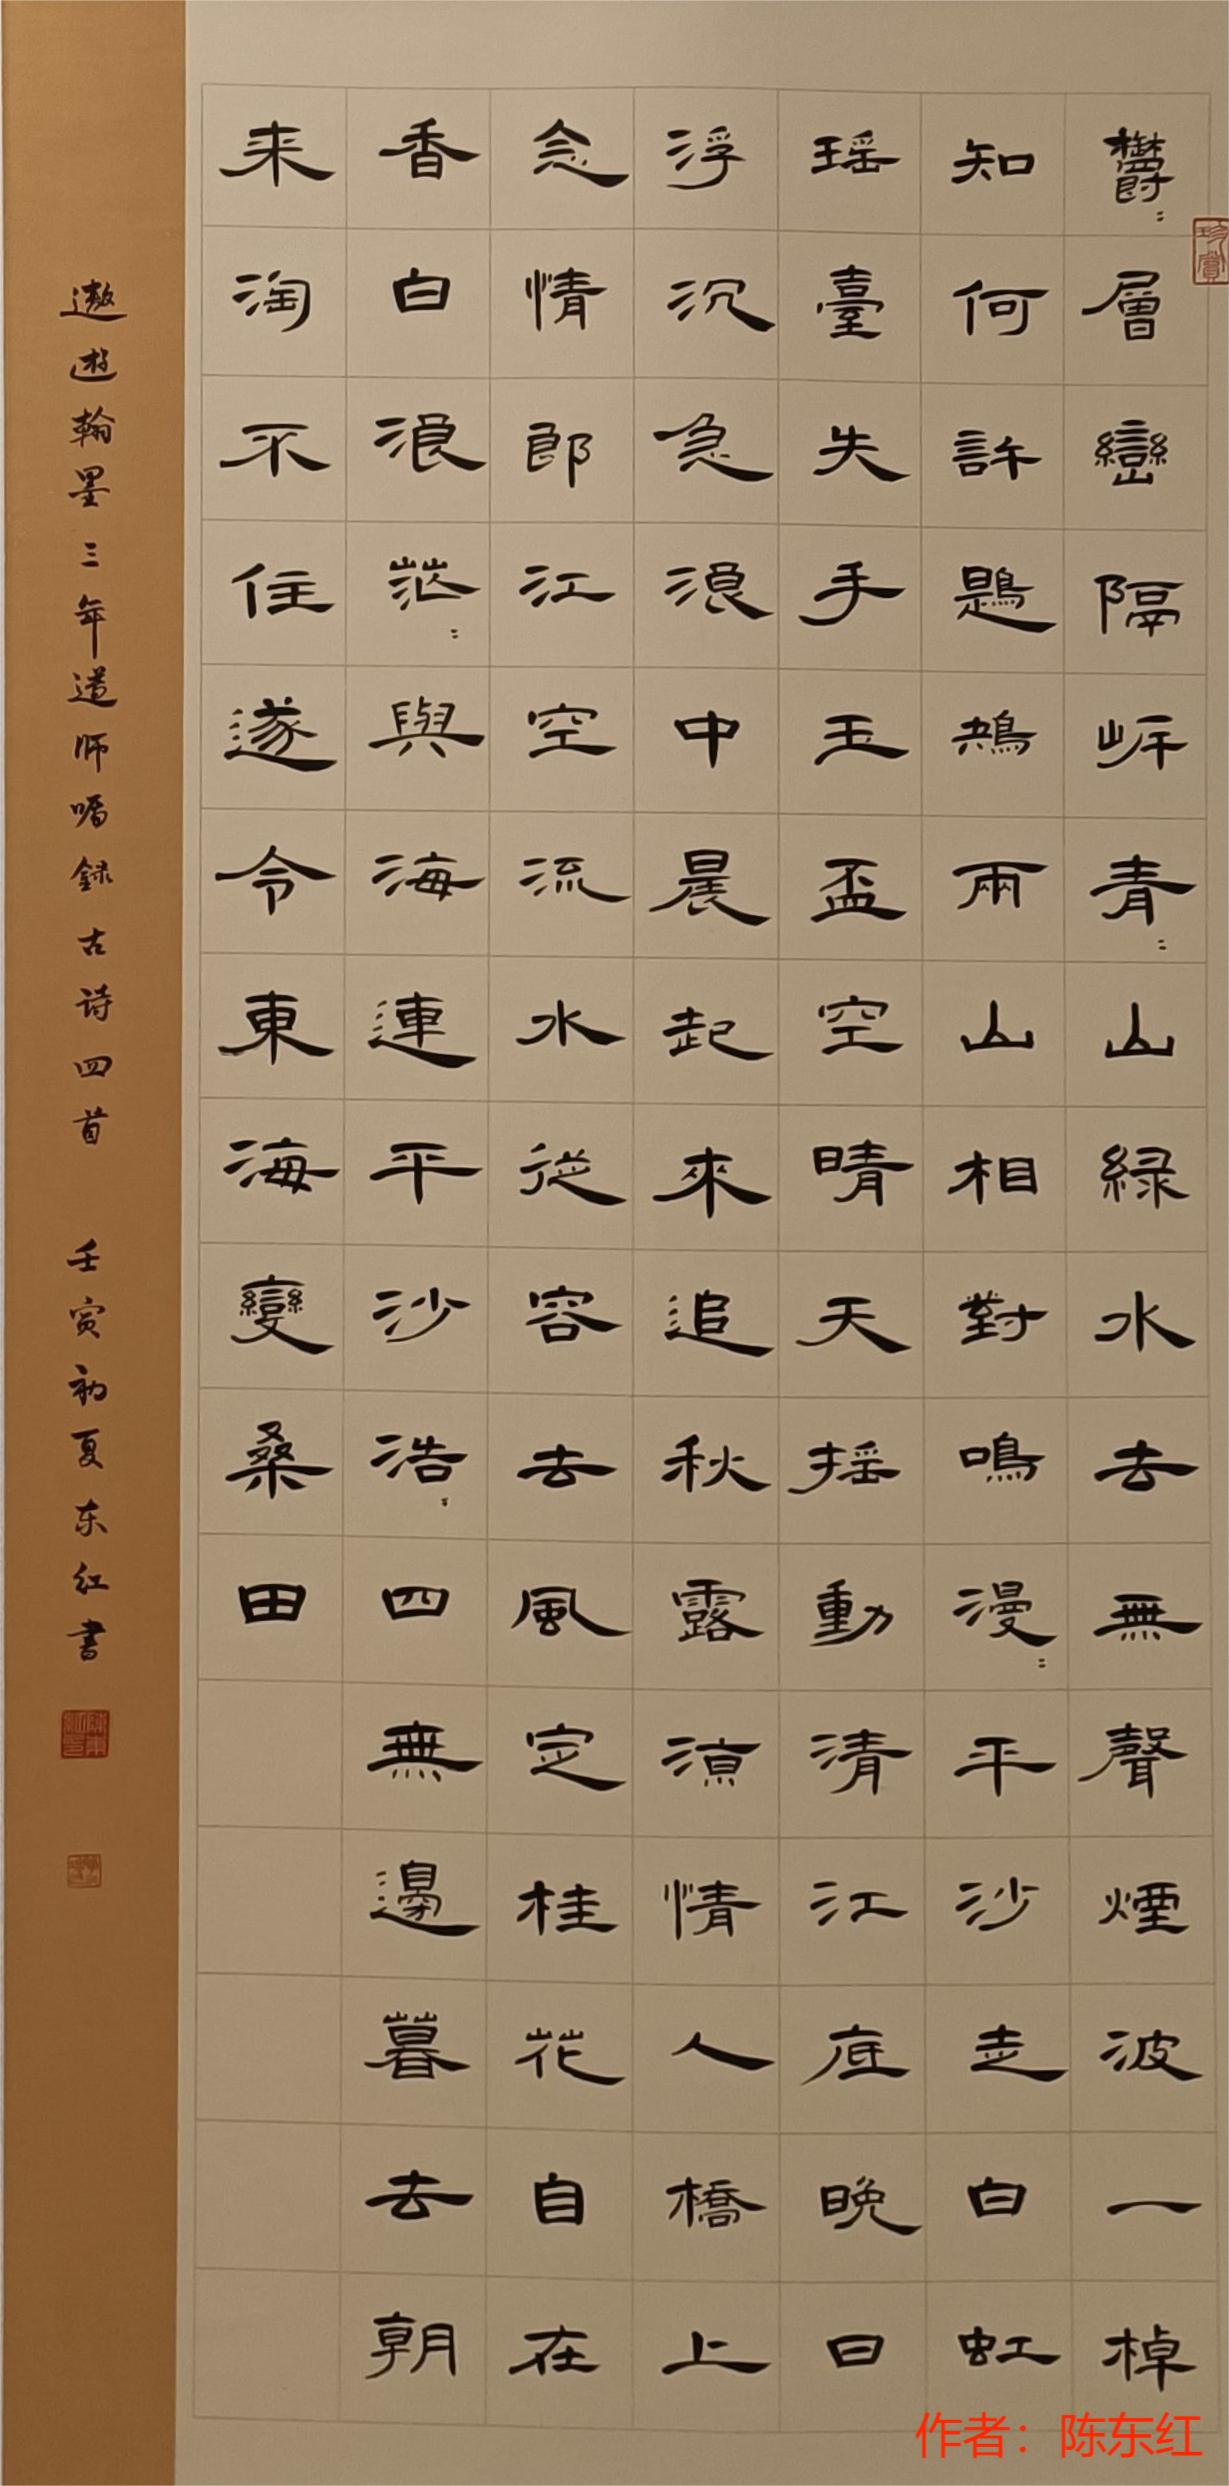 鬱〻層巒隔岍青〻山綠水去無聲煙波一棹
知何許鶗鴂兩山相對鳴漫〻平沙走白虹
瑶臺失手玉盃空晴天摇動清江底晚日
浮沉急浪中晨起來追秋露凉情人橋上
念情郎江空流水從容去風定桂花自在
香白浪茫〻與海連平沙浩〻四無邊暮去朝
来淘不住遂令東海變桑田
遨遊翰墨三年遵师嘱録古诗四首 壬寅初夏东红書
珍賞
作者：陈东红